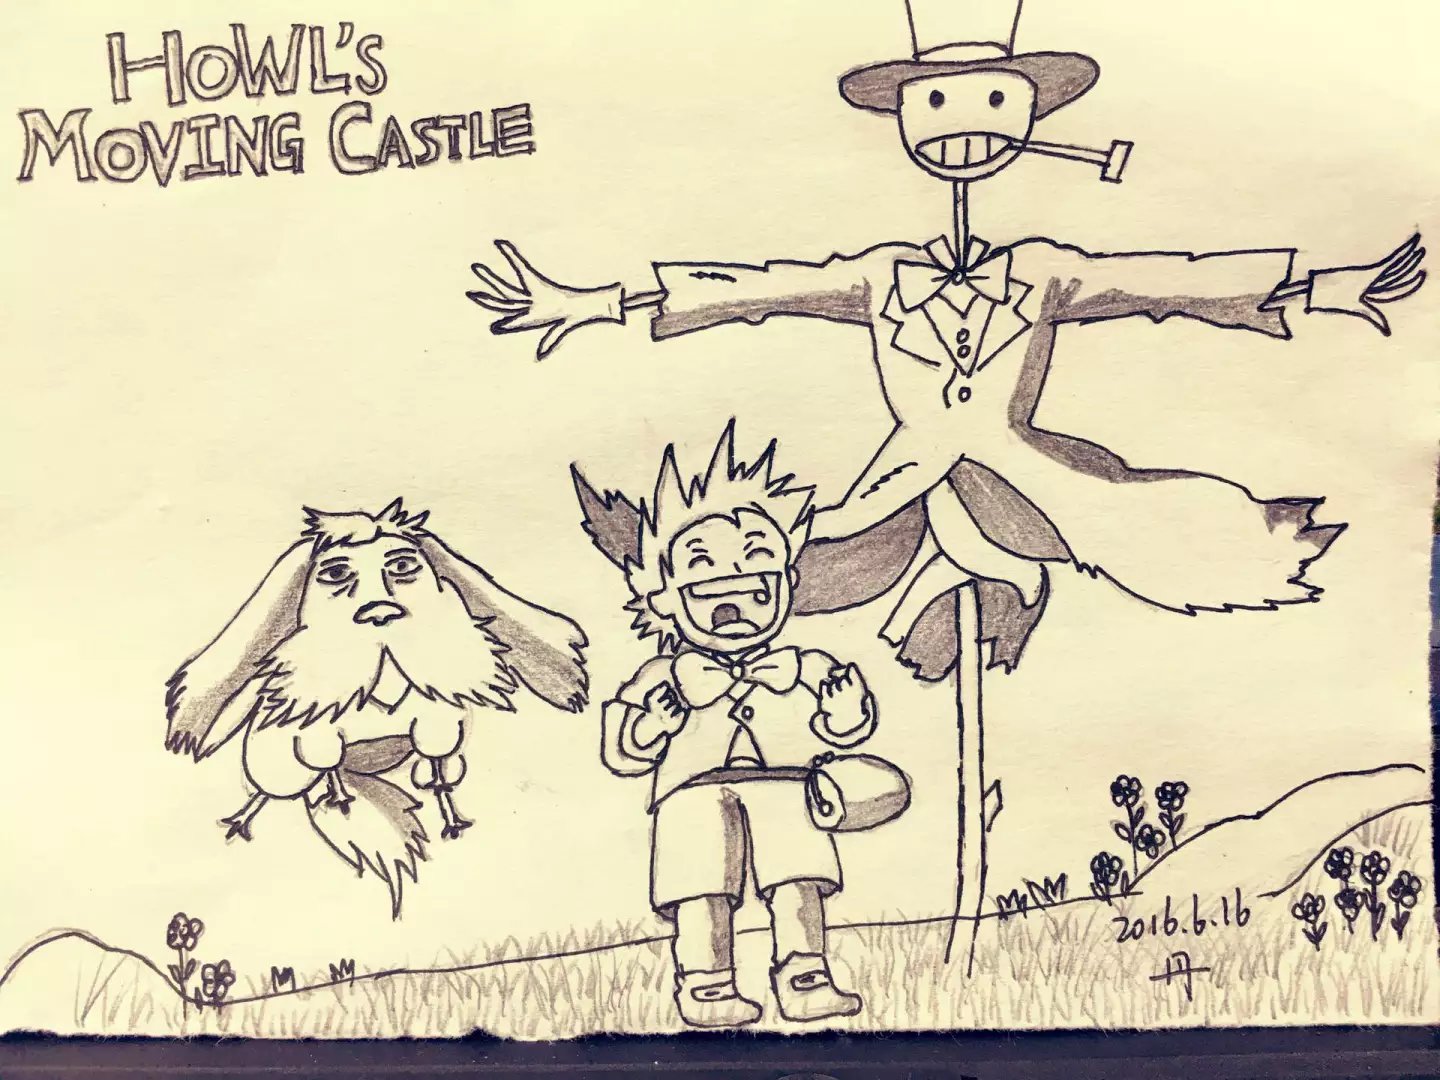 HOWL'S
MOVING CASTLE
2016.6.16
丹